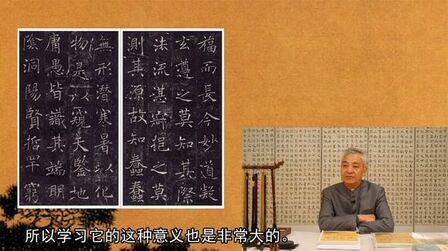 福而長今妙道凝
玄遵之莫知其際
法流湛寂挹之莫
測其源故知蠢蠢
無形潛寒暑以化
物是以窺天鑒地
庸愚皆識其端明
陰洞陽賢哲罕窮
所以学习它的这种意义也是非常大的。